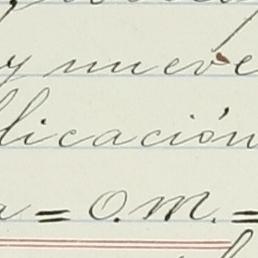 y nueve
licación
a = O.M. =